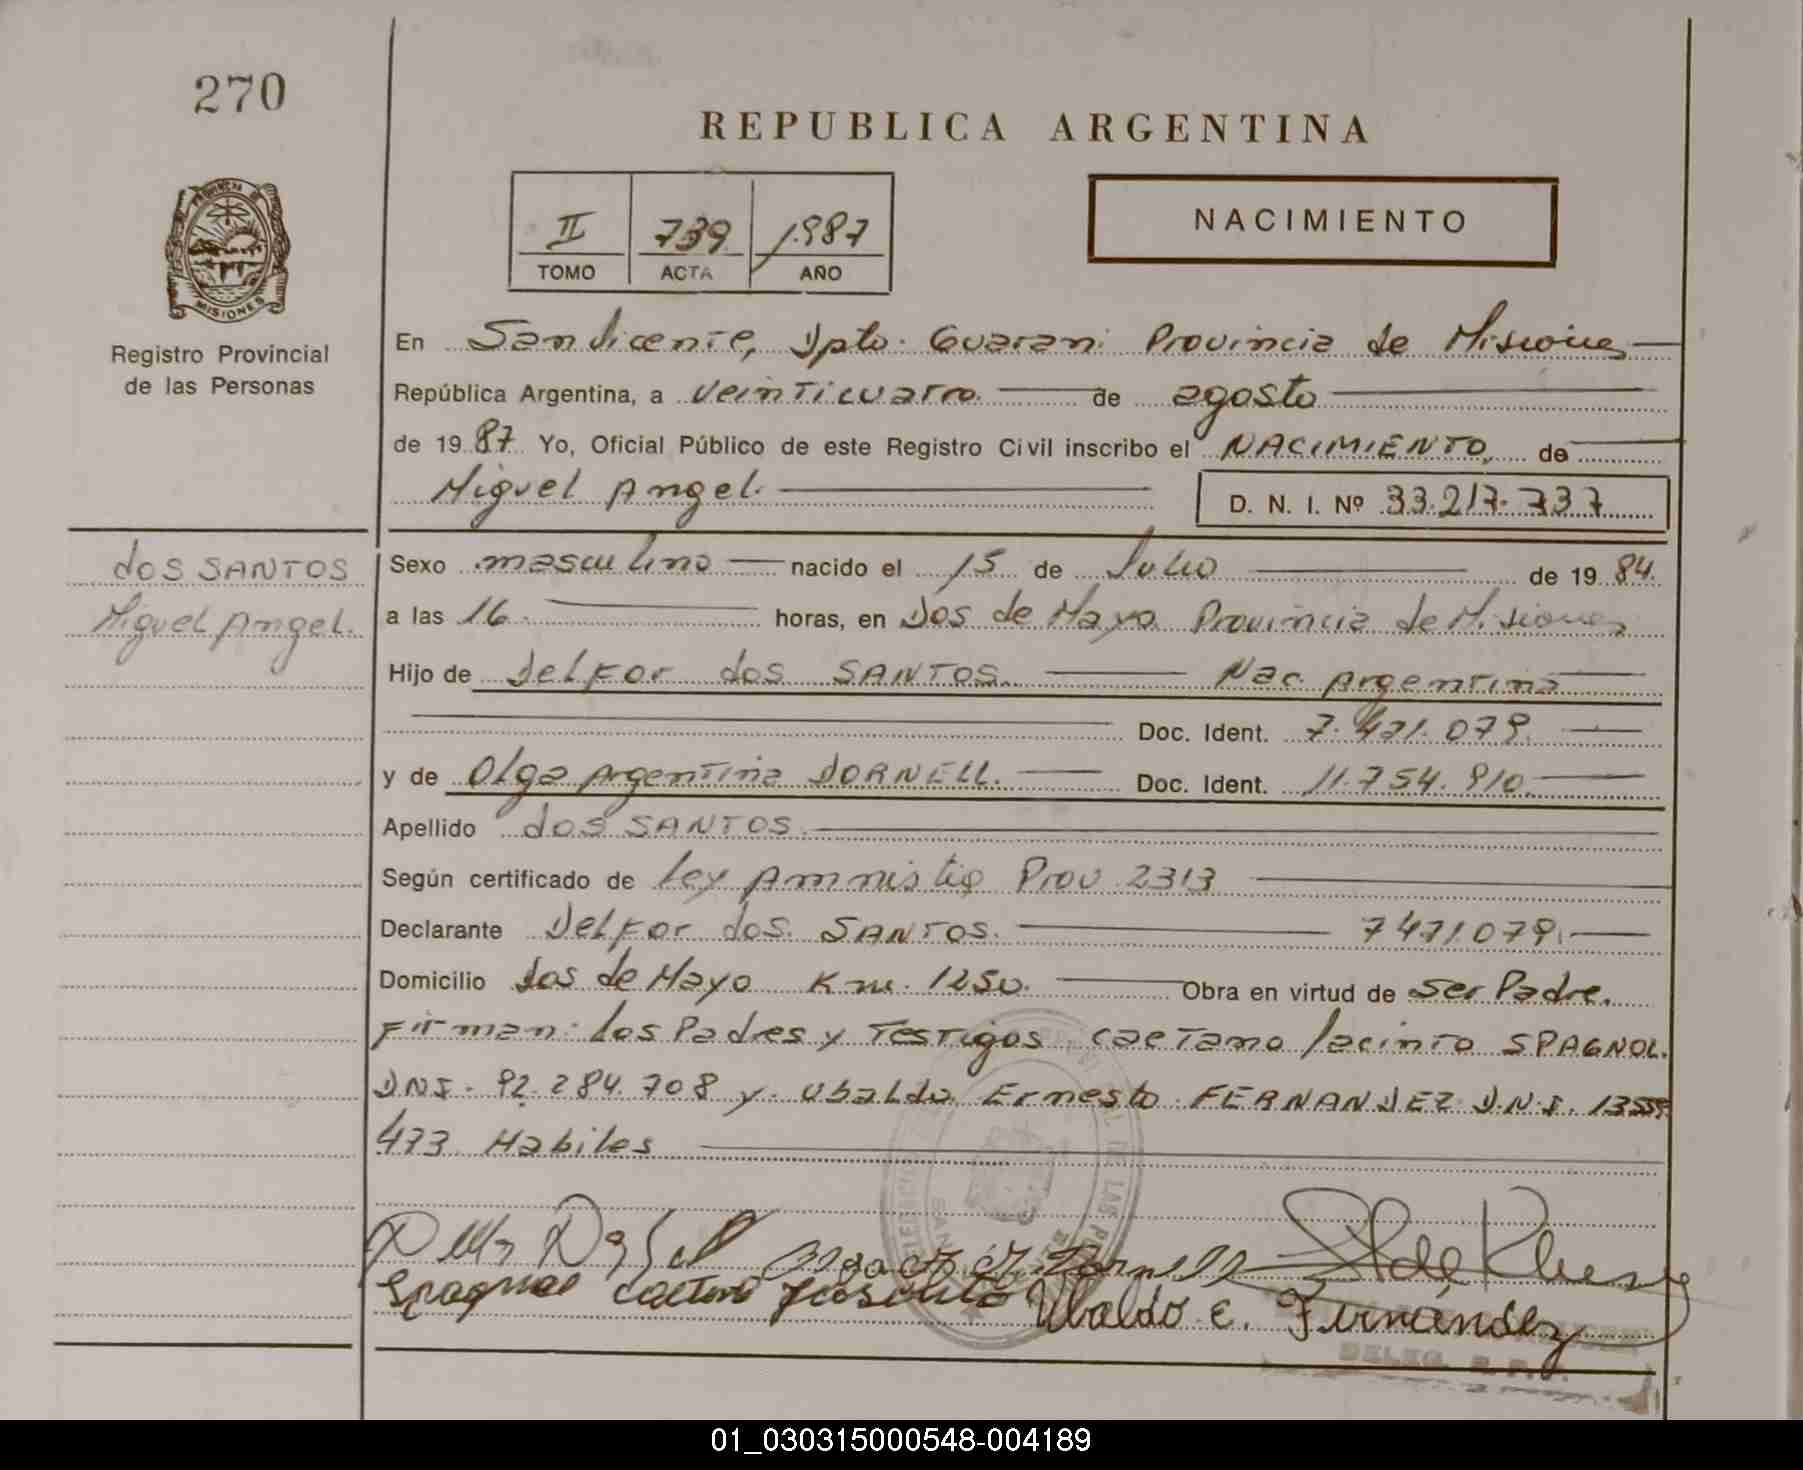 270
REPUBLICA ARGENTINA
II 739 1.987
TOMO ACTA AÑO
NACIMIENTO
PROVINCIA DE
MISIONES
Registro Provincial
de las Personas
En San Vicente, Dpto. Guarani Provincia de Misiones
República Argentina, a veinticuatro de agosto
de 19 87 Yo, Oficial Público de este Registro Civil inscribo el NACIMIENTO, de
Miguel Angel. D. N. I. Nº 33.217.737
dos SANTOS
Miguel Angel.
Sexo masculino nacido el 15 de Julio de 19 84.
a las 16 horas, en Dos de Mayo Provincia de Misiones
Hijo de Delfor dos SANTOS. Nac Argentina
Doc. Ident. 7.471.079.
y de Olga Argentina DORNELL. Doc. Ident. 11.754.910.
Apellido dos SANTOS.
Según certificado de Ley Amnistia Prov 2313
Declarante Delfor dos SANTOS. 7471.079.
Domicilio Dos de Mayo Km. 1250. Obra en virtud de ser Padre.
Firman: Los Padres y Testigos Caetano Jacinto SPAGNOL.
DNI. 92.284.708 y Ubaldo Ernesto FERNANDEZ D.N.I. 13559
473 Habiles
Spagnol Ubaldo E. Fernández
DELEG. R. P.
01_030315000548-004189